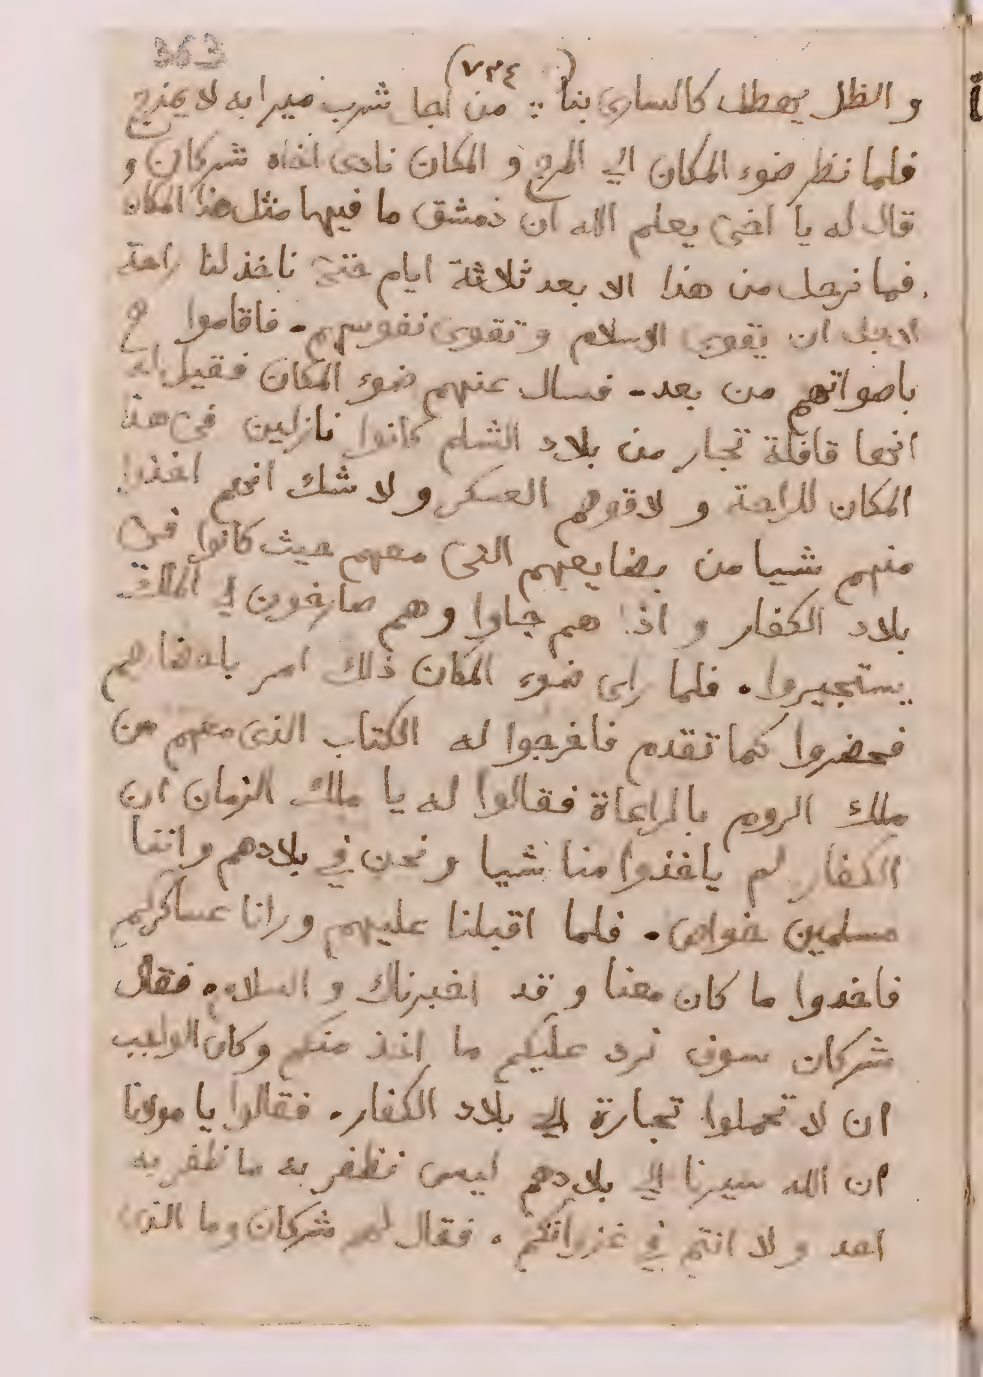 363
(٧٣٤)
و الظل يعطك كالسارى بنا من اجل شرب ميرابه لا يمزج
فلما نظر ضوء المكان الي المرج و المكان نادى اخاه شركان و
قال له يا اخى يعلم الله ان دمشق ما فيها مثل هذا المكان
فما نرحل من هذا الا بعد ثلاثة ايام حتى ناخذ لنا راحة
لاجل ان يقوى الاسلام و تقوى نفوسهم. فاقاموا
باصواتهم من بعد. فسال عنهم ضوء المكان فقيل له
انها قافلة تجار من بلاد الشام كانوا نازلين فى هذا
المكان للراحة و لاقوهم العسكر و لا شك انهم اخذوا
منهم شيا من بضايعهم التى معهم حيث كانوا فى
بلاد الكفار و اذا هم جاوا وهم صارخون لـ الملك
يستجيروا. فلما راى ضوء المكان ذلك امر باحضارهم
فحضروا كما تقدم فاخرجوا له الكتاب الذى معهم من
ملك الروم بالمراعاة فقالوا له يا ملك الزمان ان
الكفار لم ياخذوا منا شيا و نحن في بلادهم و اننا
مسلمين خواص. فلما اقبلنا عليهم و رانا عساكركم
فاخدوا ما كان معنا و قد اخبرناك و السلام. فقال
شركان سوف نرد عليكم ما اخذ منكم و كان الواجب
ان لا تحملوا تجارة الي بلاد الكفار. فقالوا يا مولانا
ان الله سيرنا الي بلادهم ليس نظفر به ما ظفر به
احد و لا انتم في غزواتكم. فقال لهم شركان و ما الذى